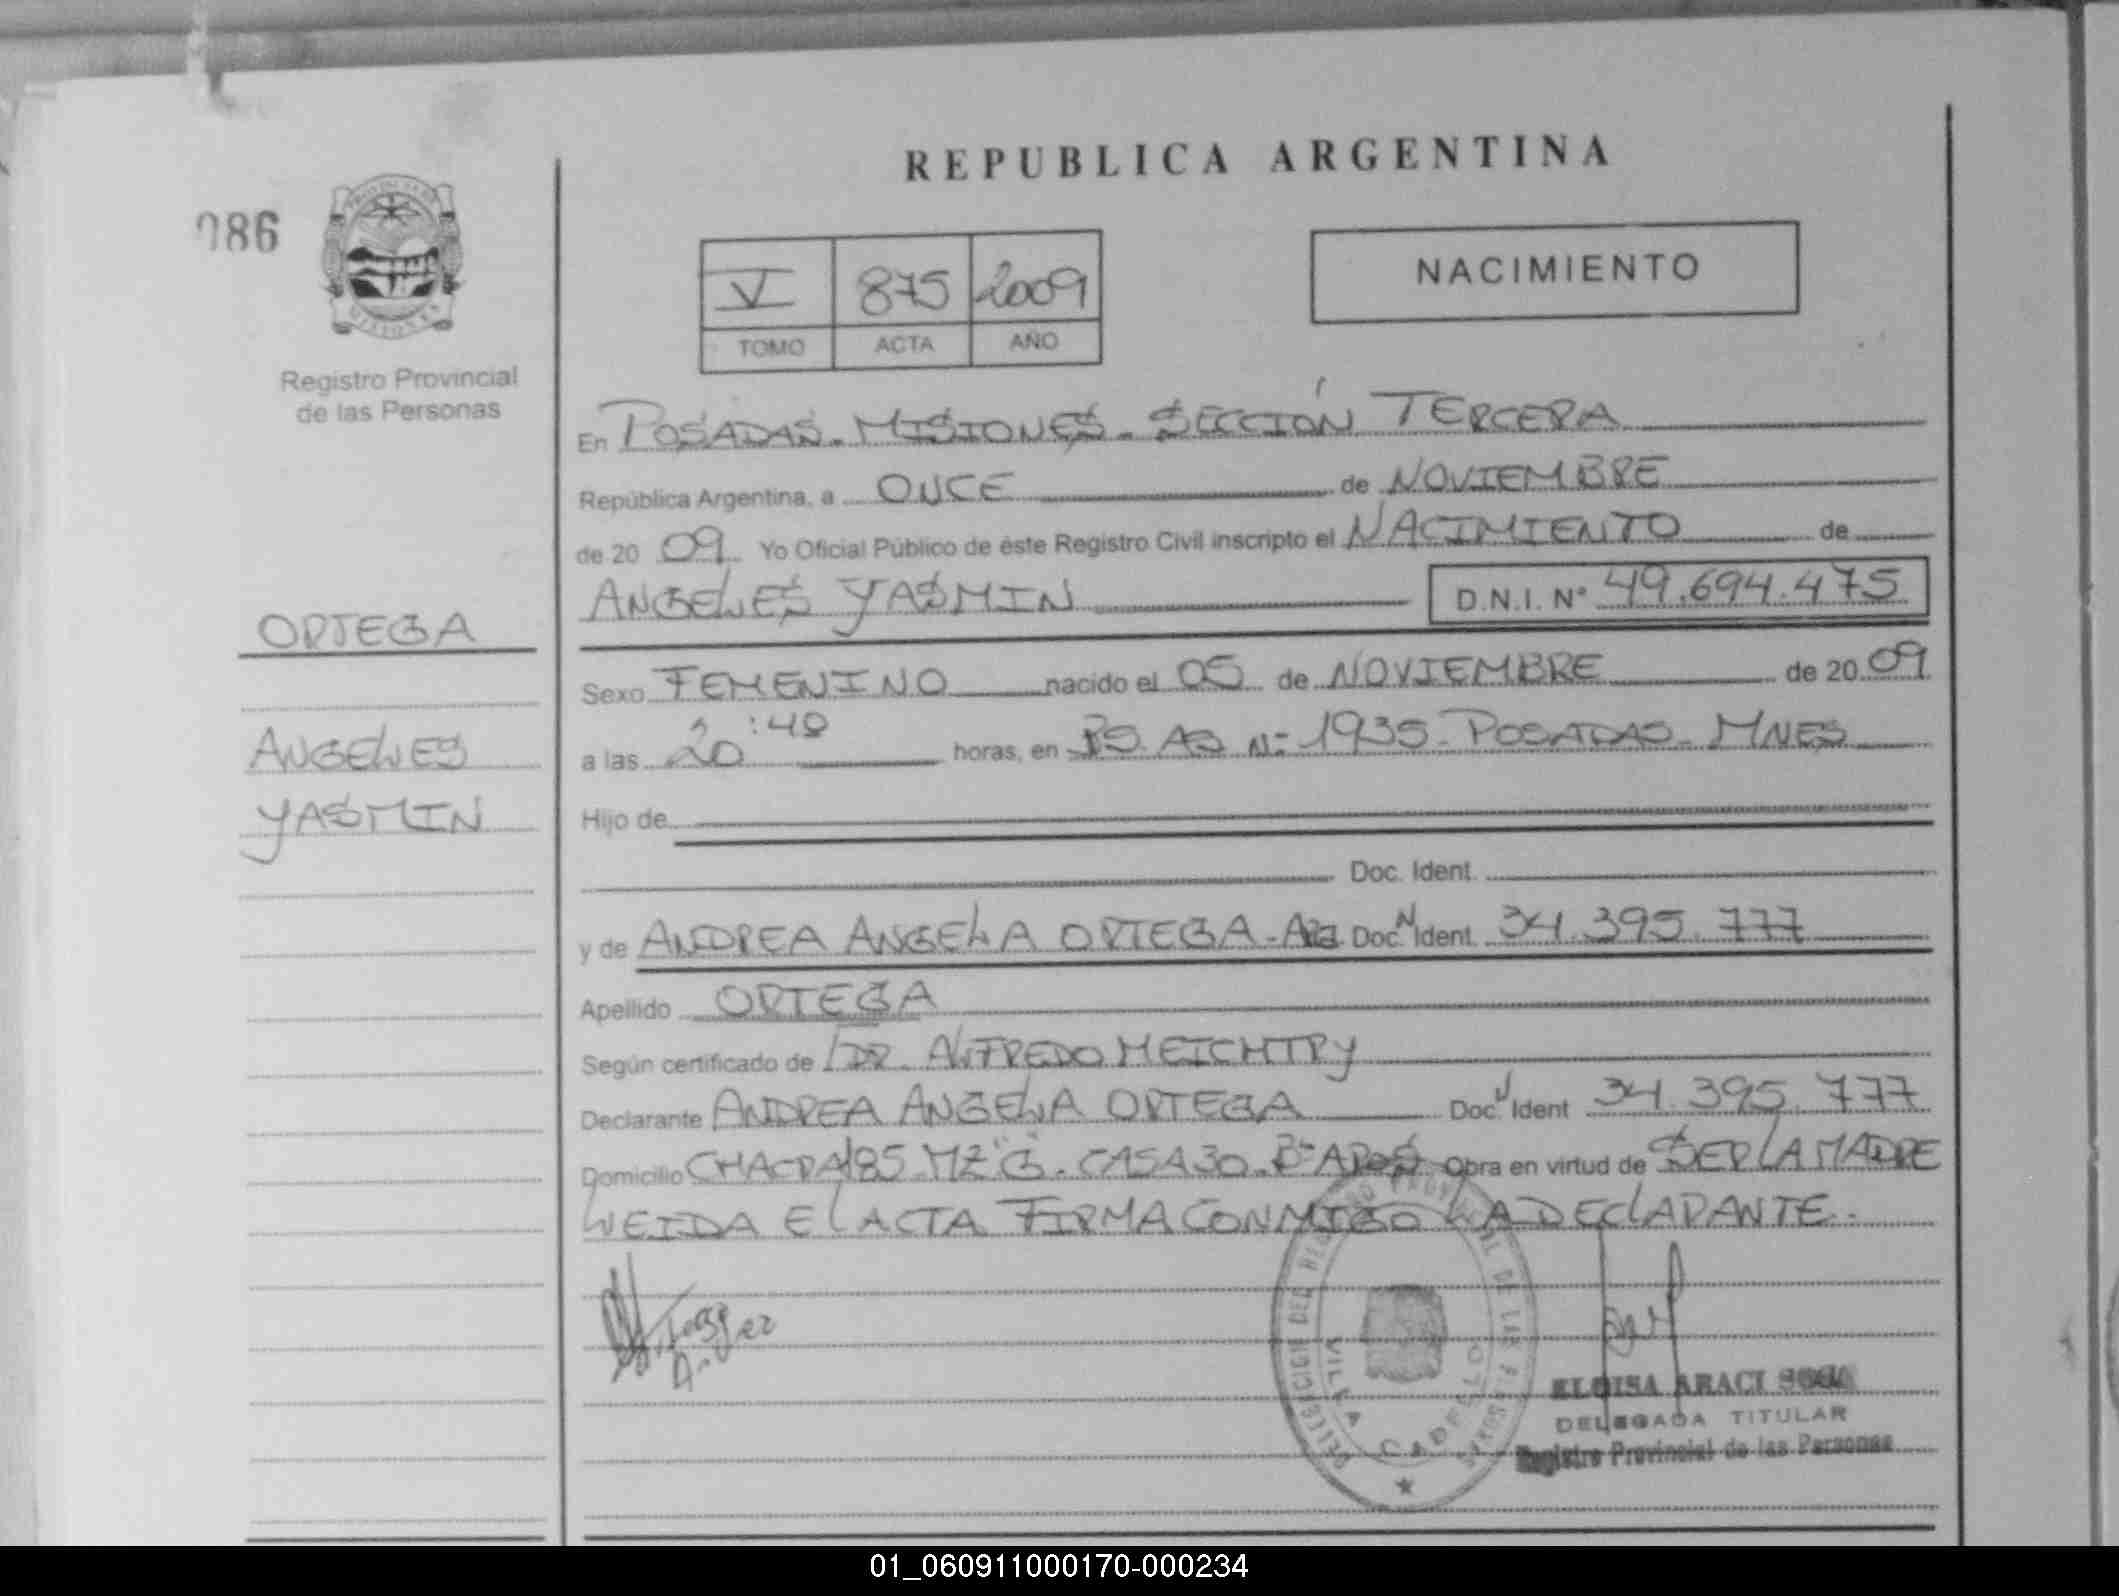 REPUBLICA ARGENTINA
086
PROVINCIA DE
MISIONES
Registro Provincial
de las Personas
V 875 2009
TOMO ACTA AÑO
NACIMIENTO
En POSADAS - MISIONES - SECCIÓN TERCERA
República Argentina, a ONCE de NOVIEMBRE
de 20 09 Yo Oficial Público de éste Registro Civil inscripto el NACIMIENTO de
ANGELES YASMIN D.N.I. Nº 49.694.475
ORTEGA
ANGELES
YASMIN
Sexo FEMENINO nacido el 05 de NOVIEMBRE de 20 09
a las 20:48 horas, en BS. AS Nº 1935 - POSADAS - MNES
Hijo de
Doc. Ident.
y de ANDREA ANGELA ORTEGA - ARG Doc. N Ident. 34.395.777
Apellido ORTEGA
Según certificado de DR. ALFREDO MEICHTRY
Declarante ANDREA ANGELA ORTEGA Doc. Ident 34.395.777
Domicilio CHACRA 185 MZ "G" - CASA 30 - Bº Obra en virtud de SER LA MADRE
LEIDA EL ACTA FIRMA CONMIGO LA DECLARANTE.
DELEGACION DEL REGISTRO PROVINCIAL DE LAS PERSONAS
VILLA CABELLO
ELOISA ARACI
DELEGADA TITULAR
Registro Provincial de las Personas
01_060911000170-000234